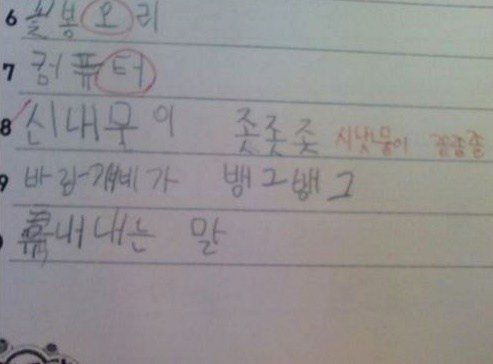 6 봉오리
7 컴퓨터
8 신내물이 좃좃좃 시냇물이 졸졸졸
9 바람개비가 뱅그뱅그
흉내내는 말